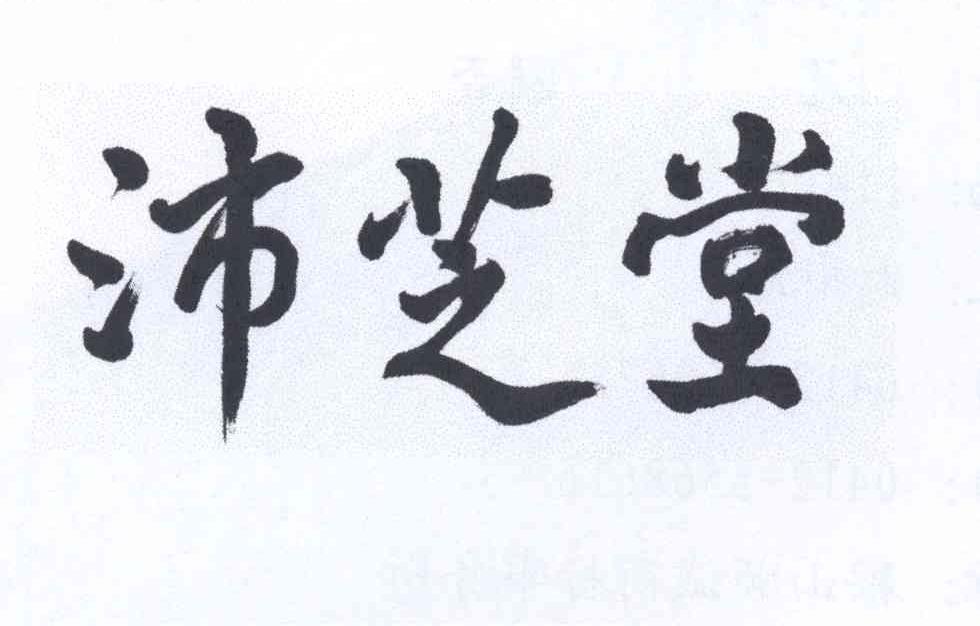 沛芝堂